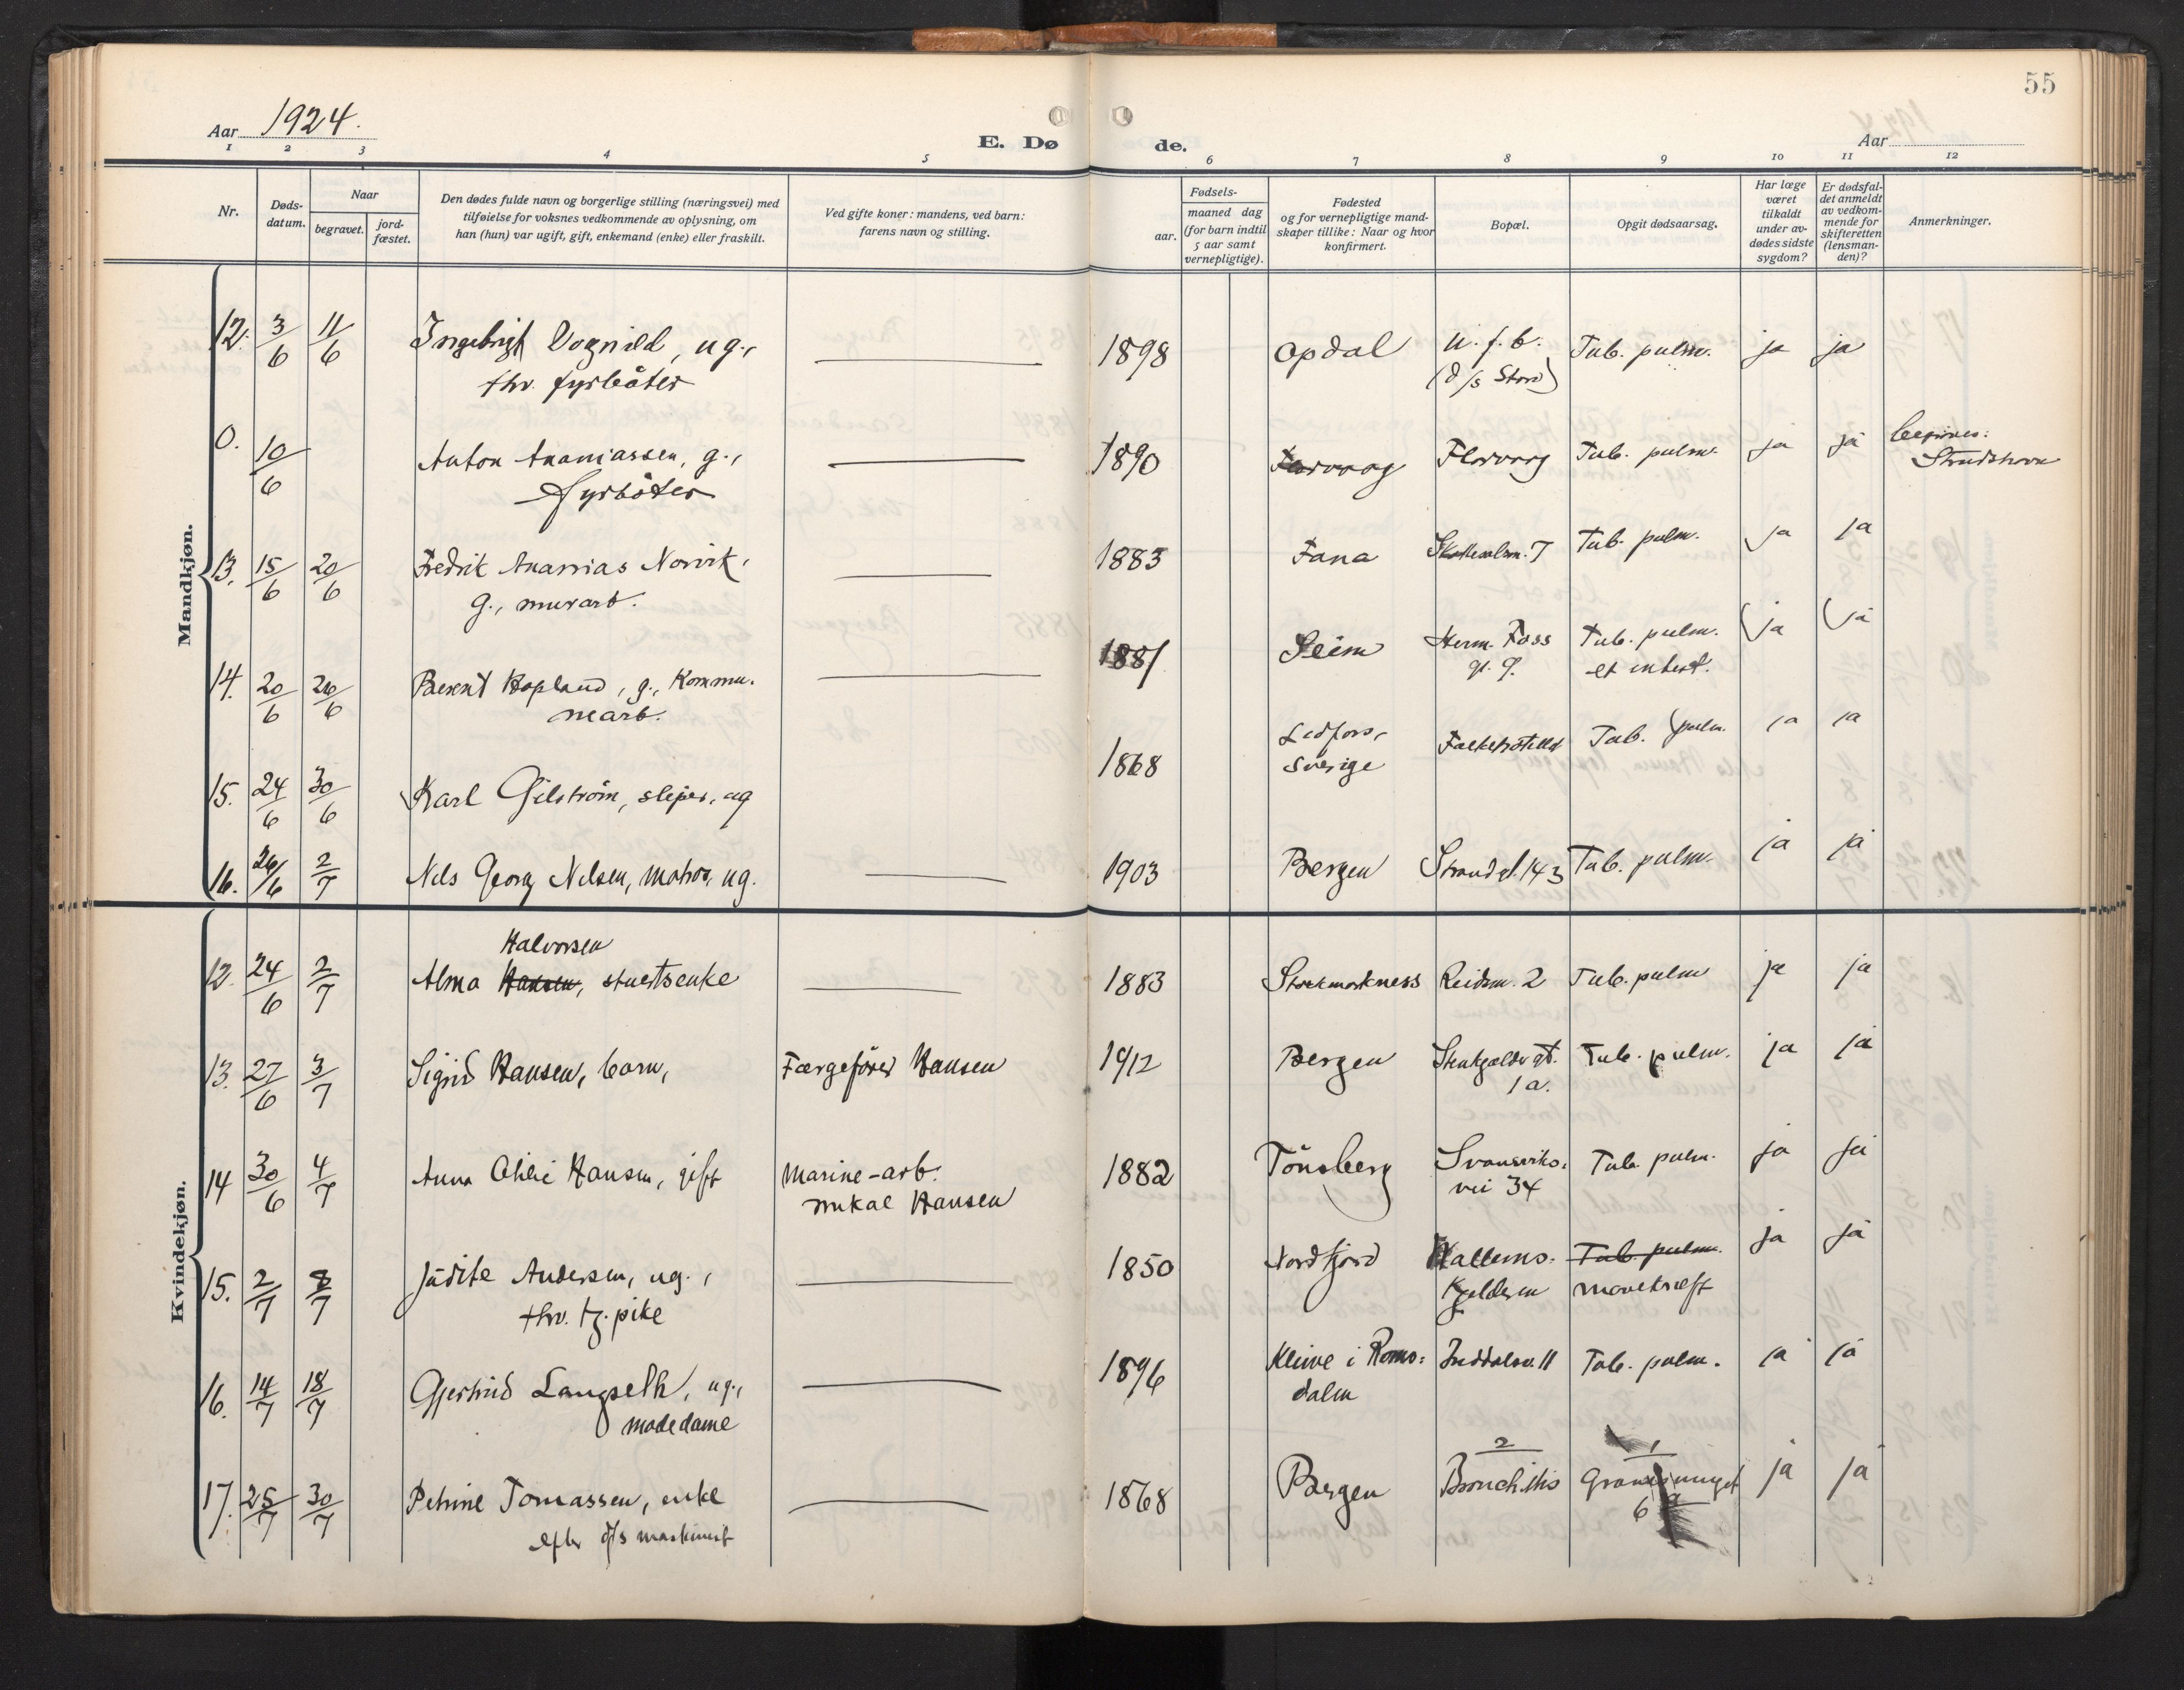 55
Aar 1924.
E. Dø de.
Aar
1 2 3 4 5 6 7 8 9 10 11 12
Nr.
Døds-
datum.
Naar
begravet.
jord-
fæstet.
Den dødes fulde navn og borgerlige stilling (næringsvei) med
tilføielse for voksnes vedkommende av oplysning, om
han (hun) var ugift, gift, enkemand (enke) eller fraskilt.
Ved gifte koner: mandens, ved barn:
farens navn og stilling.
Fødsels-
aar.
maaned dag
(for barn indtil
5 aar samt
vernepligtige).
Fødested
og for vernepligtige mand-
skaper tillike: Naar og hvor
konfirmert.
Bopæl.
Opgit dødsaarsag.
Har læge
været
tilkaldt
under av-
dødes sidste
sygdom?
Er dødsfal-
det anmeldt
av vedkom-
mende for
skifteretten
(lensman-
den)?
Anmerkninger.
Mandkjøn.
12. 3/6 11/6 Ingebrigt Vognild, ug., 1898 Opdal u. f. b. Tub. pulm. ja ja
thv. fyrbøter (d/s Stord)
0. 10/6 Anton Ananiassen, g., 1890 Florvaag Florvaag Tub. pulm. ja ja
fyrbøter
13. 15/6 20/6 Fredrik Ananias Norvik, 1883 Fana T Tub. pulm. ja ja
g., murarb.
14. 20/6 26/6 Berent Hopland, g., Kommu- 1881 Seim Herm. Foss Tub. pulm. ja ja
nearb. gt. 9. et intest.
15. 24/6 30/6 Karl Gilström, sliper, ug 1868 Tub. pulm. ja ja
Sverige
16. 26/6 2/7 Nils Georg Nilsen, matros, ug. 1903 Bergen Strandgt. 143 Tub. pulm. ja ja
Kvindekjøn.
Halvorsen
12. 24/6 2/7 Alma Hansen, stuertsenke 1883 Stokmarkness Reidm. 2 Tub. pulm ja ja
13. 27/6 3/7 Sigrid Hansen, barn, Færgefører Hansen 1912 Bergen gt. Tub. pulm. ja ja
1 a.
14 30/6 4/7 Anna Hansen, gift Marine-arb. 1882 Tönsberg Svansviks- Tub. pulm. ja ja
Mikal Hansen vei 34
15. 2/7 8/7 Jádite Andersen, ug., 1850 Nordfjord Tub. pulm. ja ja
thv. tj. pike mavekræft
16. 14/7 18/7 Gjertrud Langseth, ug., 1896 Kleive i Roms- Inddalsv. 11 Tub. pulm. ja ja
modedame dalen
2 1
17. 25/7 30/7 Petrine Tomassen, enke 1868 Bergen Bronchitis ja ja
efter d/s maskinist 6